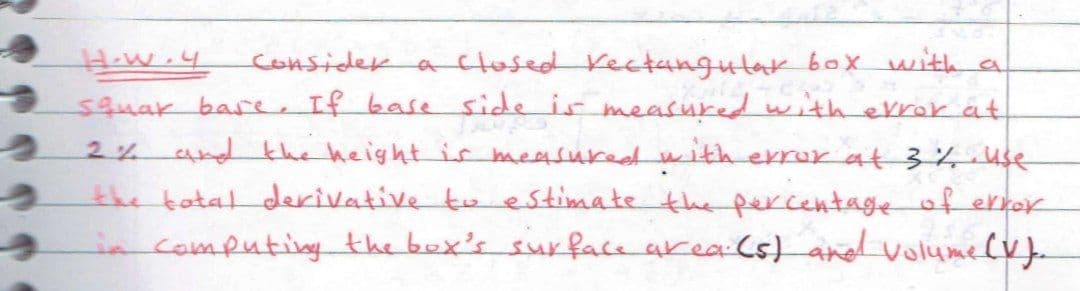 H.W.4 Consider a closed rectangular box with a
squar base. If base side is measured with error at
2% and the height is measured with error at 3%. use
the total derivative to estimate the percentage of error
in computing the box's surface area (s) and volume (V).